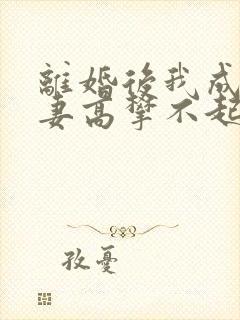 離婚後我成
妻高攀不起
孜憂